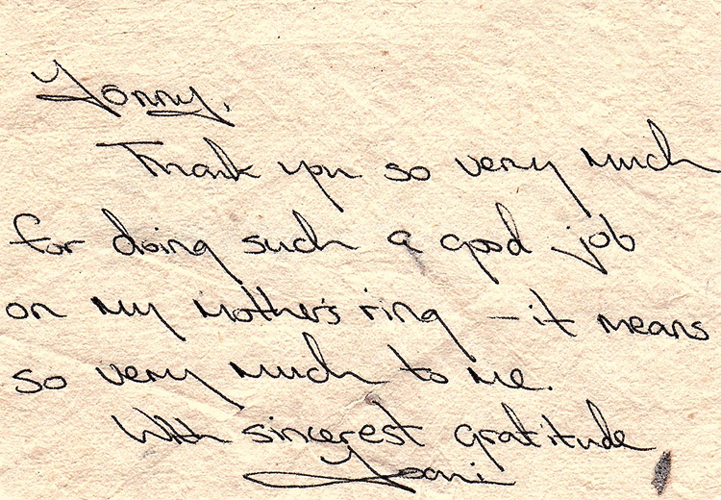 Yonny,
Thank you so very much
for doing such a good job
on my mother's ring – it means
so very much to me.
With sincerest gratitude